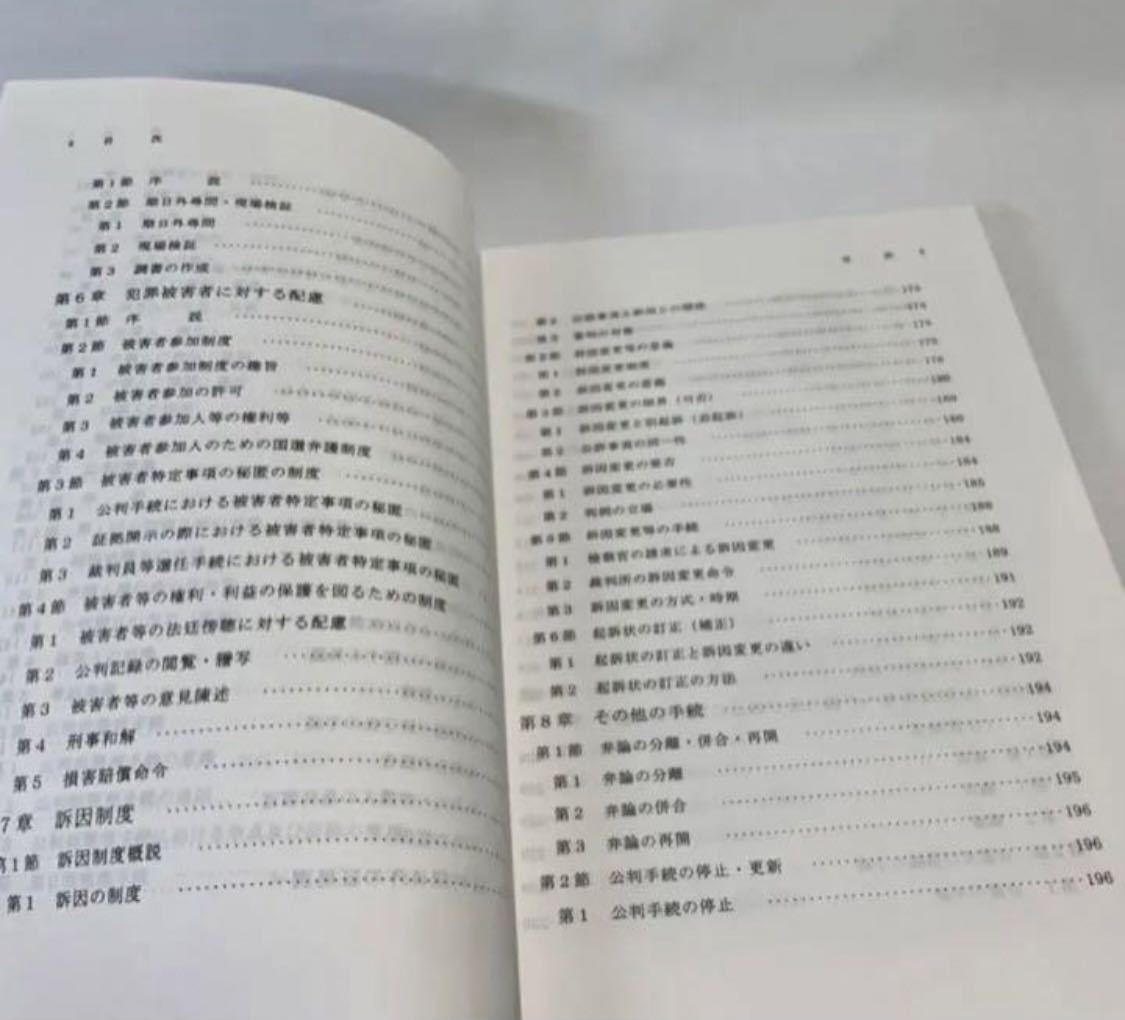 目 次
第1節 序 説
第2節 期日外尋問・現場検証
第1 期日外尋問
第2 現場検証
第3 調書の作成
第6章 犯罪被害者に対する配慮
第1節 序 説
第2節 被害者参加制度
第1 被害者参加制度の趣旨
第2 被害者参加の許可
第3 被害者参加人等の権利等
第4 被害者参加人のための国選弁護制度
第3節 被害者特定事項の秘匿の制度
第1 公判手続における被害者特定事項の秘匿
第2 証拠開示の際における被害者特定事項の秘匿
第3 裁判員等選任手続における被害者特定事項の秘匿
第4節 被害者等の権利・利益の保護を図るための制度
第1 被害者等の法廷傍聴に対する配慮
第2 公判記録の閲覧・謄写
第3 被害者等の意見陳述
第4 刑事和解
第5 損害賠償命令
7章 訴因制度
第1節 訴因制度概説
第1 訴因の制度
目 次
第3節 訴因変更等の意義
第1 訴因変更制度
第2 訴因変更の意義
第3節 訴因変更の限界(可否) 180
第1 訴因変更と別起訴(追起訴) 180
第2 公訴事実の同一性 180
第4節 訴因変更の要否 184
第1 訴因変更の必要性 184
第2 判例の立場 185
第5節 訴因変更等の手続 188
第1 検察官の請求による訴因変更 188
第2 裁判所の訴因変更命令 189
第3 訴因変更の方式・時期 191
第6節 起訴状の訂正(補正) 192
第1 起訴状の訂正と訴因変更の違い 192
第2 起訴状の訂正の方法 192
第8章 その他の手続 194
第1節 弁論の分離・併合・再開 194
第1 弁論の分離 194
第2 弁論の併合 195
第3 弁論の再開 196
第2節 公判手続の停止・更新 196
第1 公判手続の停止 196